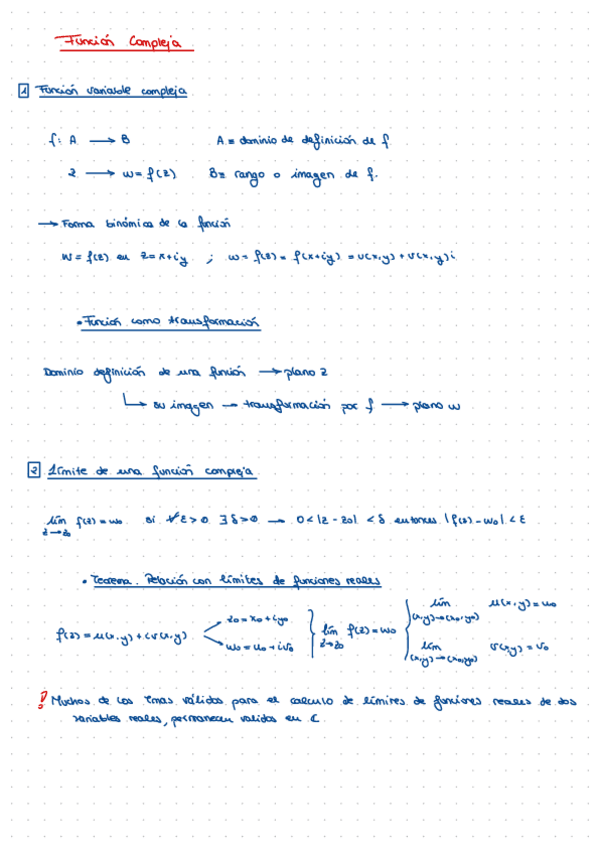 Función Compleja
1 Función variable compleja
f: A → B A ≡ dominio de definición de f
z → w = f(z) B ≡ rango o imagen de f.
→ Forma binómica de la función
W = f(z) en z = x+iy ; w = f(z) = f(x+iy) = u(x,y) + v(x,y)i
• Función como transformación
Dominio definición de una función → plano z
↳ su imagen → transformación por f → plano w
2 Límite de una función compleja
lím f(z) = w₀ si ∀ε>0 ∃δ>0 → 0<|z - z₀| < δ entonces |f(z) - w₀| < ε
z→z₀
• Teorema. Relación con límites de funciones reales
f(z) = u(x,y) + iv(x,y) z₀ = x₀ + iy₀ lím f(z) = w₀ lím u(x,y) = u₀
w₀ = u₀ + iv₀ z→z₀ (x,y)→(x₀,y₀)
lím v(x,y) = v₀
(x,y)→(x₀,y₀)
! Muchos de los Tmas válidos para el calculo de límites de funciones reales de dos
variables reales, permanecen validos en ℂ